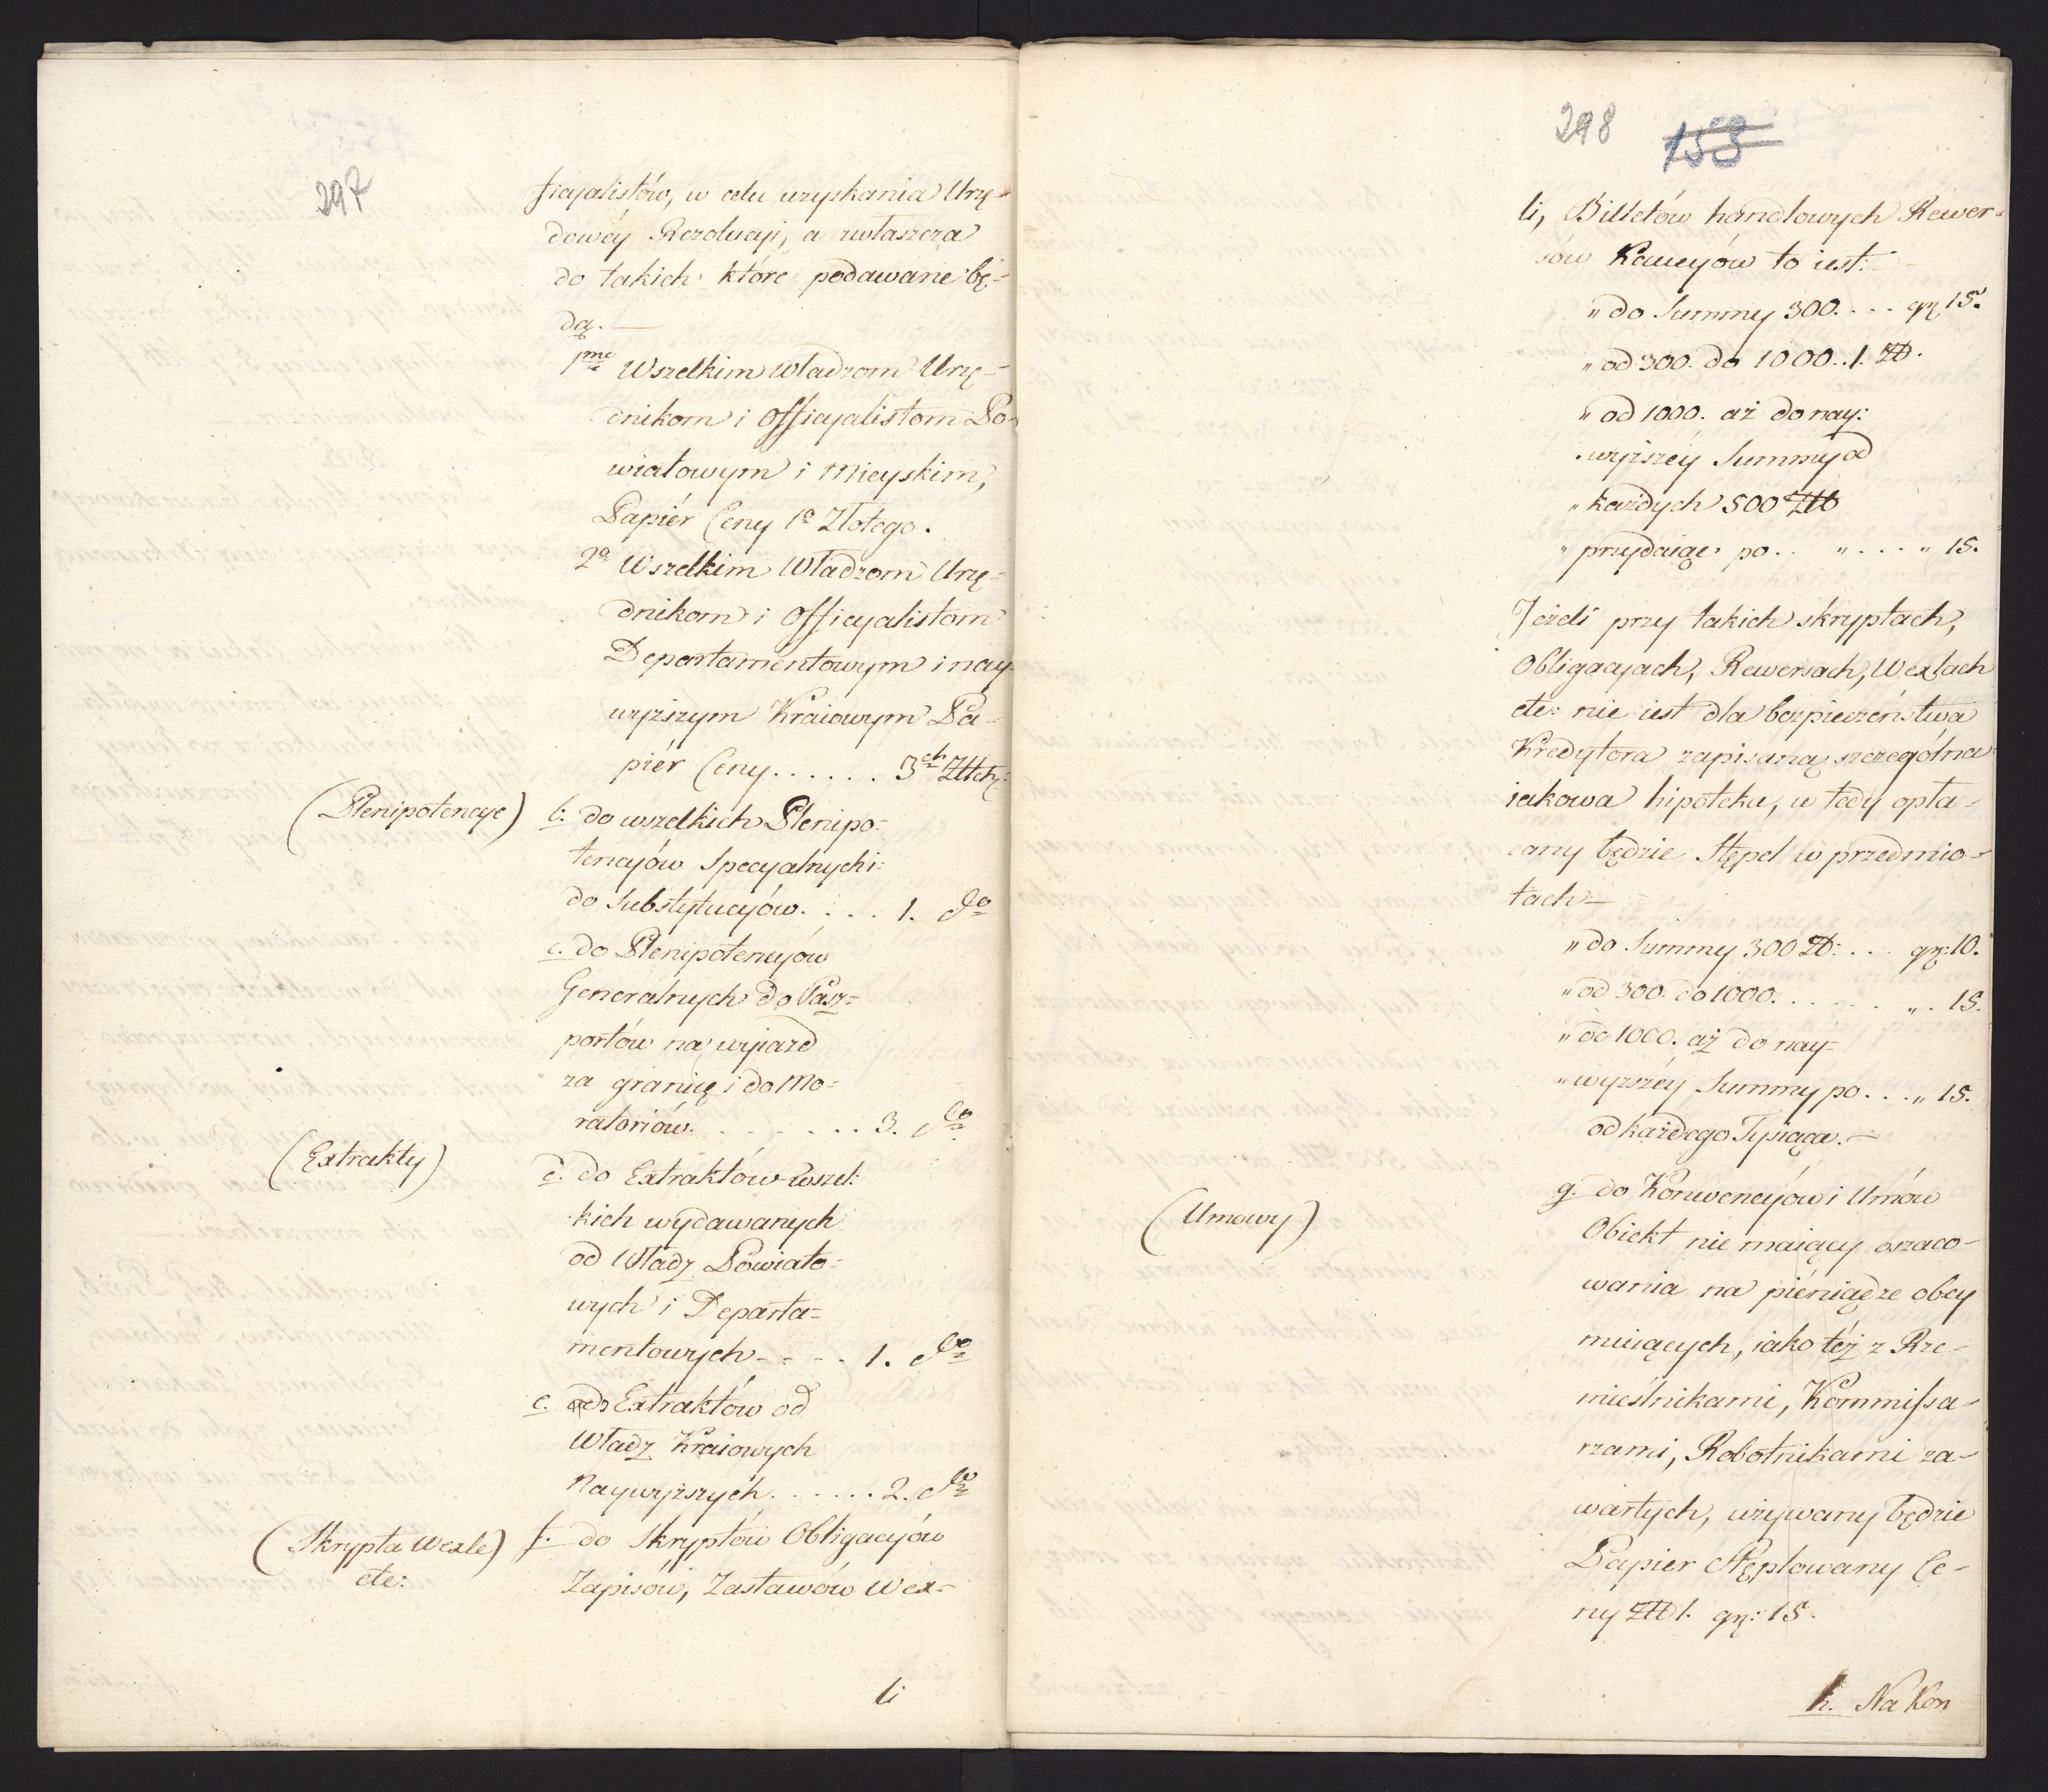 297
ficyalistów, w celu uzyskania Urzę-
dowéy Rezolucyi, a zwłaszcza
do takich które podawane bę-
dą.
1mo Wszelkim Władzom Urzę-
dnikom i Officyalistom Po-
wiatowym i Mieyskim,
Papiér Ceny 1o Złotego.
2o Wszelkim Władzom Urzę-
dnikom i Officyalistom
Departamentowym i nay-
wyższym Kraiowym Pa-
piér Ceny . . . . . . 3ch Złtch:
(Plenipotencye) b: do wszelkich Plenipo-
tencyów Specyalnych i
do Substytucyów. . . . . 1. do
c. do Plenipotencyów
Generalnych do Pasz-
portów na wyiazd
za granicę i do Mo-
ratoriów. . . . . . . . 3. do
(Extrakty) d. do Extraktów wszel:
kich wydawanych
od Władz Powiato-
wych i Departa-
mentowych - - - . 1. do
e. do Extraktów od
Władz Kraiowych
Naywyższych . . . . . . 2. do
(Skrypta Wexle) f. do Skryptów Obligacyów
etc: Zapisów, Zastawów Wex-
li
298 153
li, Billetów handlowych Rewer-
sów Kaucyów to iest:
" do Summy 300. . . . gr 15.
" od 300. do 1000. . 1. Zł.
" od 1000. aż do nay:
wyższéy Summy od
" każdych 500 Złt
" przydaiąc po . . " . . . . " 15.
Jeżeli przy takich skryptach,
Obligacyach, Rewersach, Wexlach
etc: nie iest dla bezpieczeństwa
Kredytora zapisaną szczególna
iakowa hipoteka, w tedy opła-
cany będzie Stępel w przedmio-
tach -
" do Summy 300 Zł: . . . gr: 10.
" od 300. do 1000. . . . . . . " . 15.
" od 1000. aż do nay-
" wyższéy Summy po . . . " 15.
od każdego Tysiąca. -
(Umowy) g. do Konwencyów i Umów
Obiekt nie maiący oszaco-
wania na piéniądze obey
muiących, iako też z Rze-
mieślnikami, Kommissa-
rzami, Robotnikami za-
wartych, używany będzie
Papier Stęplowany Ce-
ny Złt 1. gr: 15.
h. Na Kon